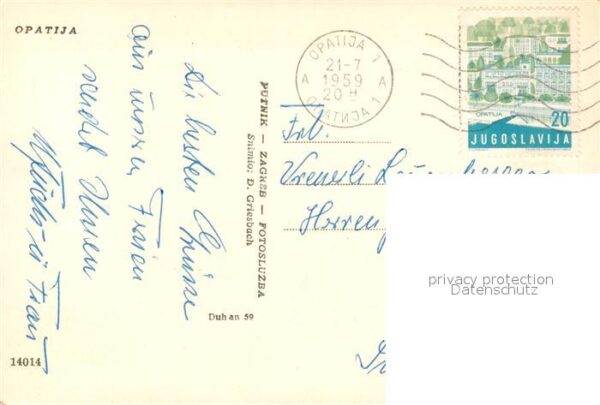 OPATIJA
Die besten Grüsse
aus unsern Ferien
sendet Ihnen
Frau
14014
PUTNIK — ZAGREB — FOTOSLUŽBA
Snimio: D. Griesbach
Duh an 59
OPATIJA 1
21-7
1959
20 H
A A
ОПАТИЈА 1
OPATIJA
20
JUGOSLAVIJA
Frl.
Vreneli
Herren
privacy protection
Datenschutz